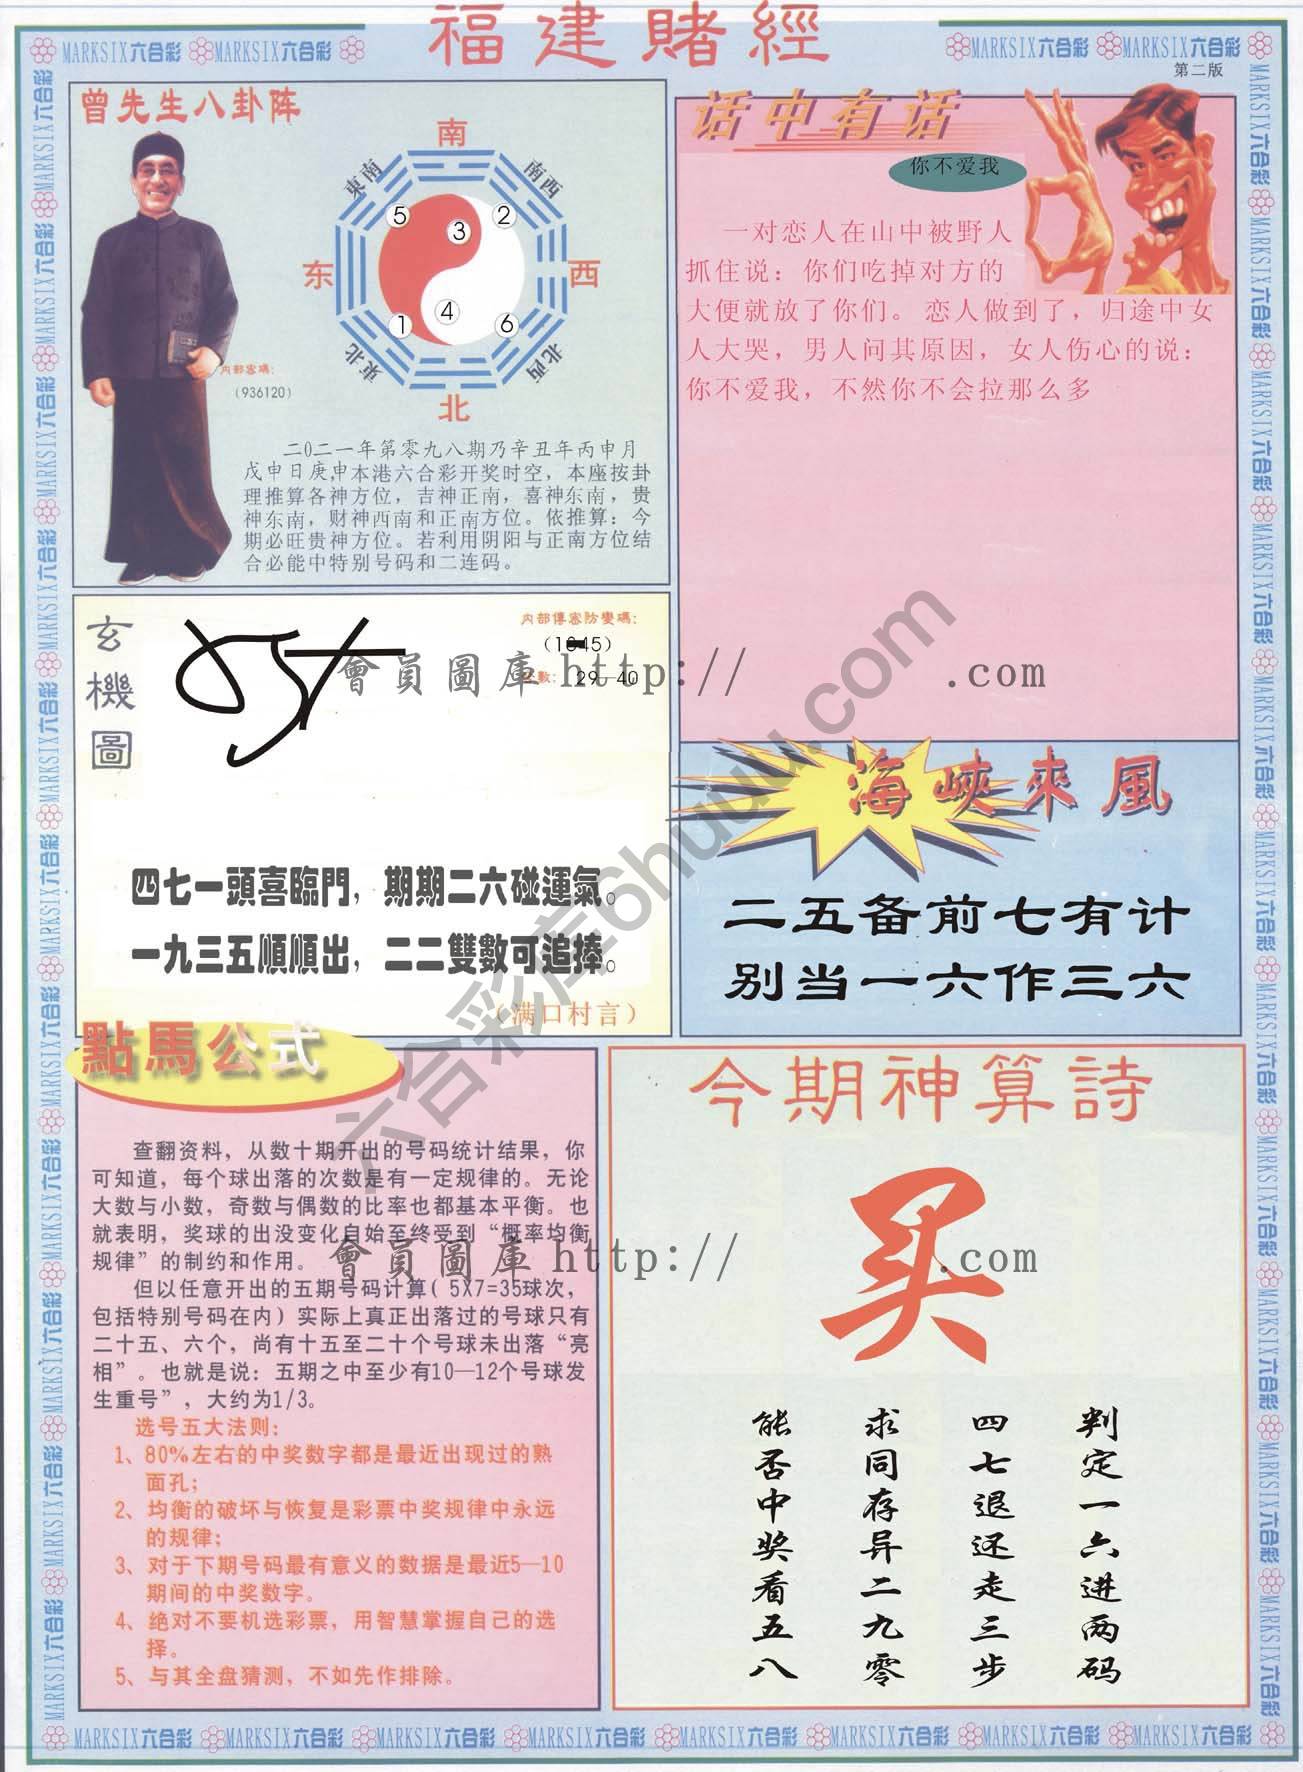 福建賭經
MARKSIX六合彩 MARKSIX六合彩
MARKSIX六合彩 MARKSIX六合彩
第二版
曾先生八卦阵
南
東南
南西
东
西
東北
北西
北
5
3
2
4
1
6
内部密碼:
(936120)
二0二一年第零九八期乃辛丑年丙申月
戊申日庚申本港六合彩开奖时空，本座按卦
理推算各神方位，吉神正南，喜神东南，贵
神东南，财神西南和正南方位。依推算：今
期必旺贵神方位。若利用阴阳与正南方位结
合必能中特别号码和二连码。
话中有话
你不爱我
一对恋人在山中被野人
抓住说：你们吃掉对方的
大便就放了你们。恋人做到了，归途中女
人大哭，男人问其原因，女人伤心的说：
你不爱我，不然你不会拉那么多
玄機圖
内部傳密防變碼:
29—40
會員圖庫 http:// .com
四七一頭喜臨門，期期二六碰運氣。
一九三五順順出，二二雙數可追捧。
（满口村言）
海峽來風
二五备前七有计
别当一六作三六
六合彩库6huuu.com
點馬公式
查翻资料，从数十期开出的号码统计结果，你
可知道，每个球出落的次数是有一定规律的。无论
大数与小数，奇数与偶数的比率也都基本平衡。也
就表明，奖球的出没变化自始至终受到“概率均衡
规律”的制约和作用。
但以任意开出的五期号码计算( 5X7=35球次，
包括特别号码在内）实际上真正出落过的号球只有
二十五、六个，尚有十五至二十个号球未出落“亮
相”。也就是说：五期之中至少有10—12个号球发
生重号”，大约为1/3。
选号五大法则:
1、80%左右的中奖数字都是最近出现过的熟
面孔;
2、均衡的破坏与恢复是彩票中奖规律中永远
的规律;
3、对于下期号码最有意义的数据是最近5—10
期间的中奖数字。
4、绝对不要机选彩票，用智慧掌握自己的选
择。
5、与其全盘猜测，不如先作排除。
今期神算詩
买
會員圖庫 http:// .com
判定一六进两码
四七退还走三步
求同存异二九零
能否中奖看五八
MARKSIX六合彩 MARKSIX六合彩 MARKSIX六合彩 MARKSIX六合彩 MARKSIX六合彩 MARKSIX六合彩 MARKSIX六合彩 MARKSIX六合彩